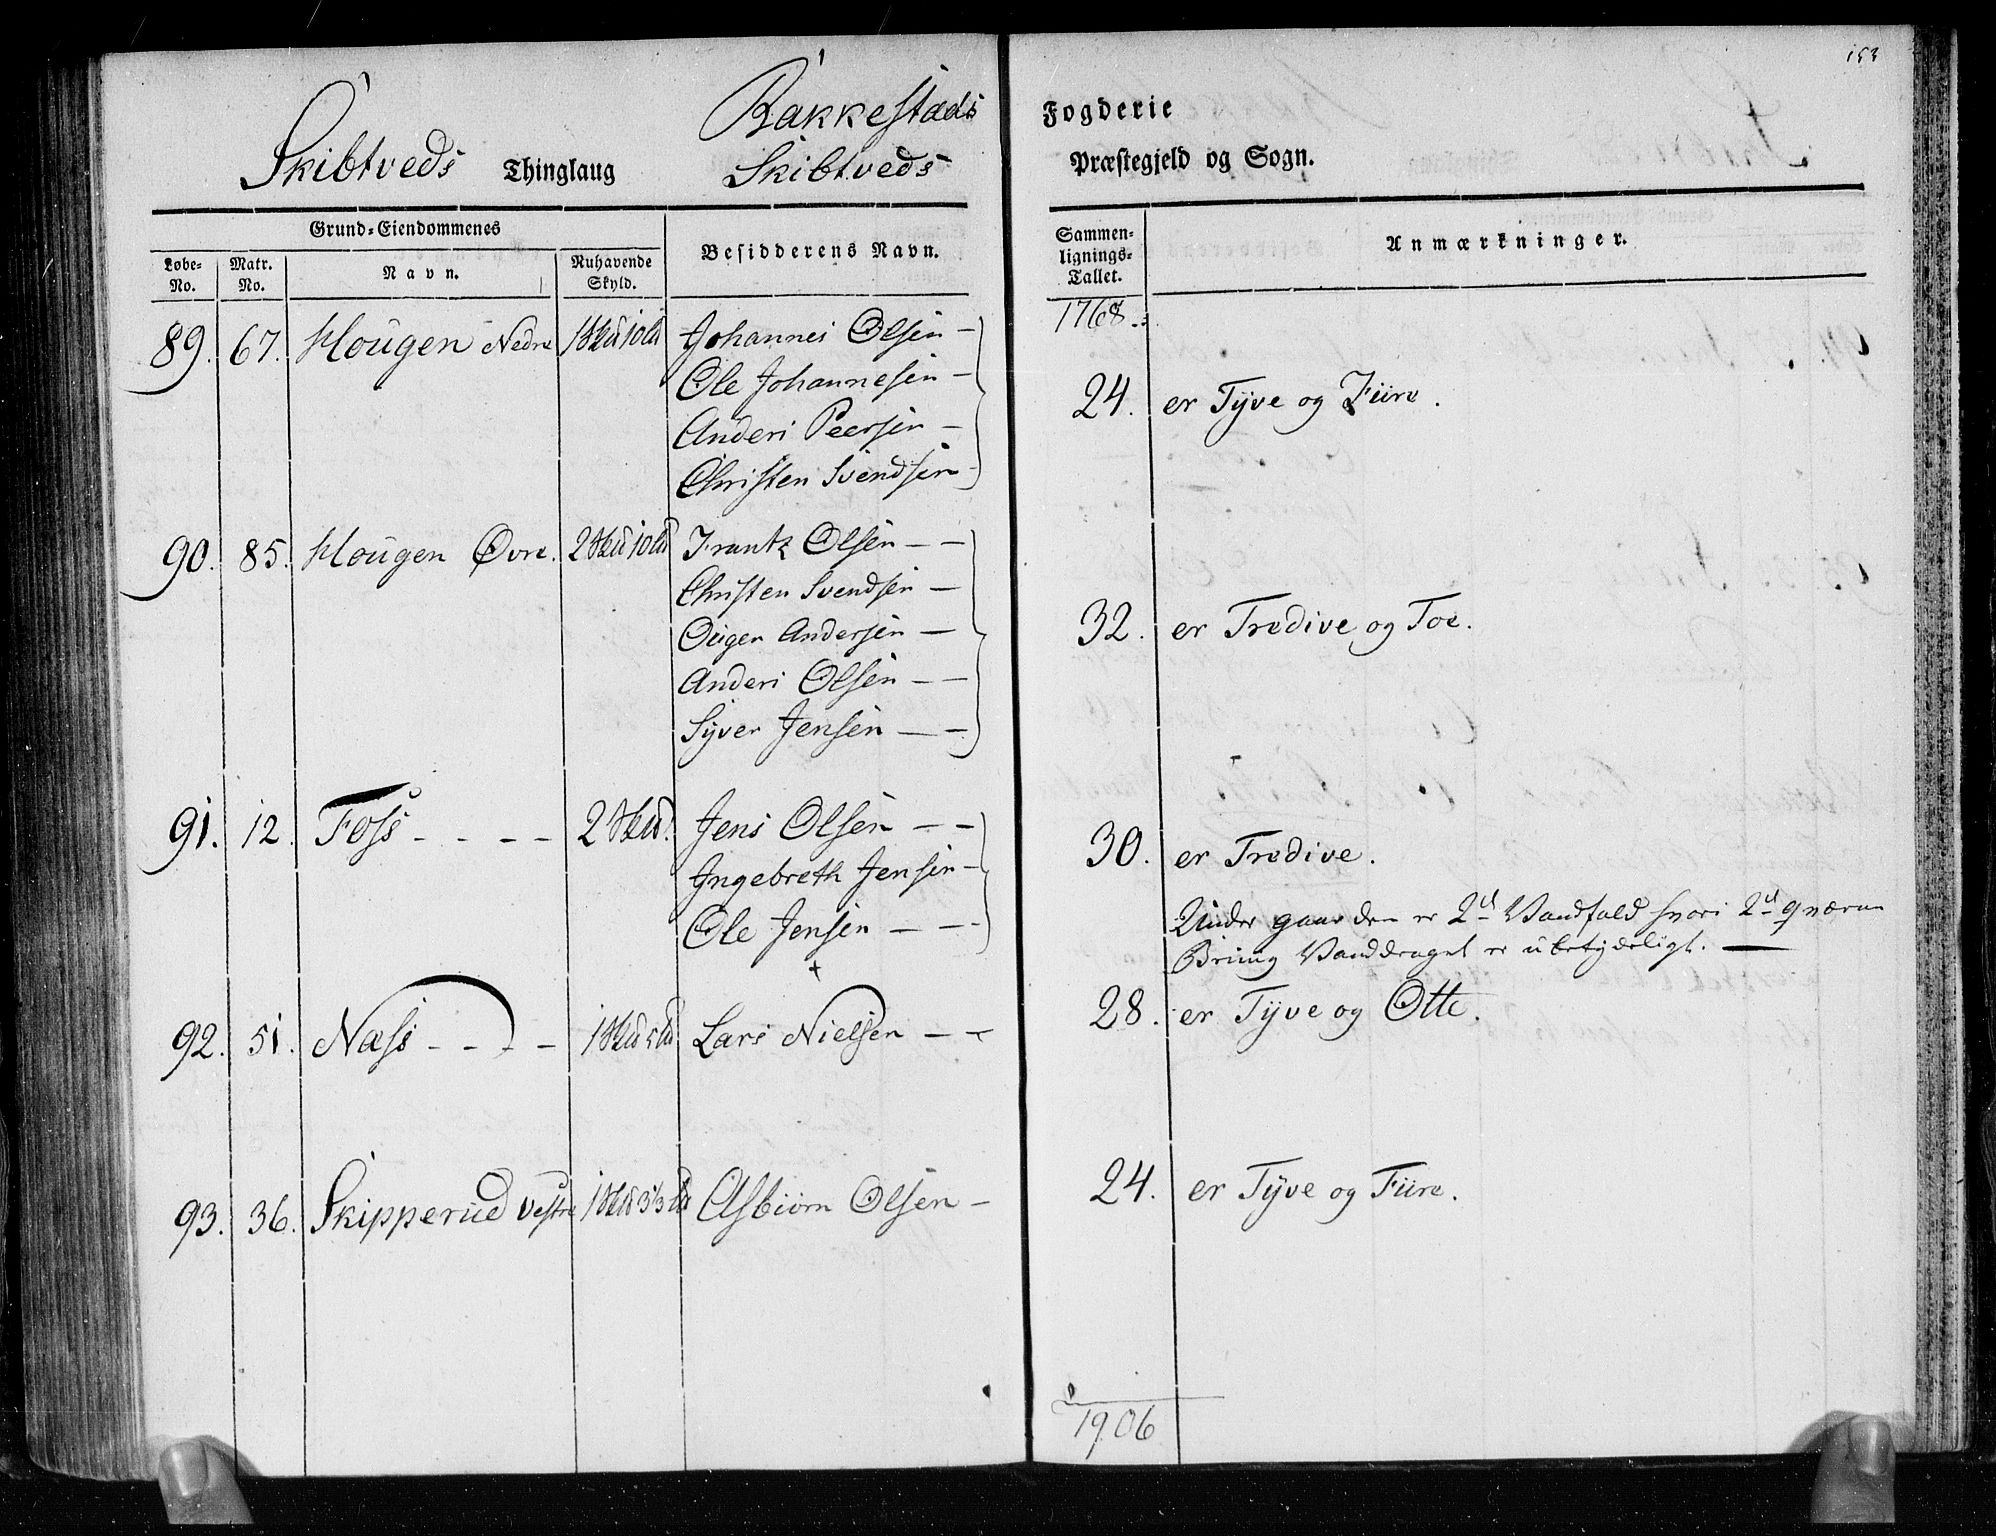 153
Rakkestads Fogderie
Skibtveds Thinglaug Skibtveds Præstegjeld og Sogn.
Grund-Eiendommenes
Løbe-No. Matr. No. Navn. Nuhavende Skyld. Besidderens Navn. Sammenlignings-Tallet. Anmærkninger.
1768.
89. 67. Hougen Nedre 1 Skd 10 Ld Johannes Olsen —
Ole Johannesen — 24. er Tyve og Fiire.
Anders Peersen —
Christen Svendsen —
90. 85. Hougen Øvre. 2 Skd 10 Ld Frantz Olsen — —
Christen Svendsen —
Ougen Andersen — 32. er Tredive og Toe.
Anders Olsen — —
Syver Jensen — —
91. 12. Foss - - - - 2 Skd. Jens Olsen — — 30. er Tredive.
Ingebreth Jensen —
Ole Jensen — — -
Under gaarden er 2d Vandfald hvori 2d qværne
Briug Vanddraget er ubetydeligt. —
92. 51. Næss - - - - 1 Skd 5 Ld Lars Nielsen — — 28. er Tyve og Otte.
93. 36. Skipperud Vestre 1 Skd 3 1/3 Ld Asbiørn Olsen — 24. er Tyve og Fiire.
1906